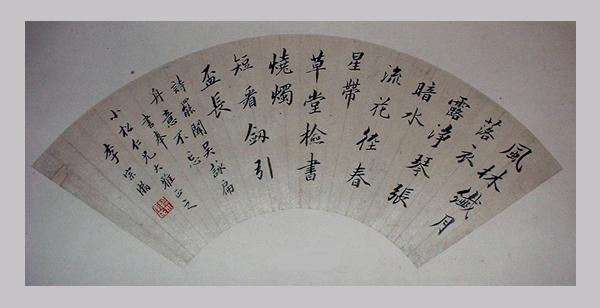 風林纖月
落衣
露淨琴張
暗水
流花徑春
星帶
草堂檢書
燒燭
短看釼引
盃長
詩罷聞吳詠扁
舟意不忘
書奉
小松仁兄大雅正之
李宗